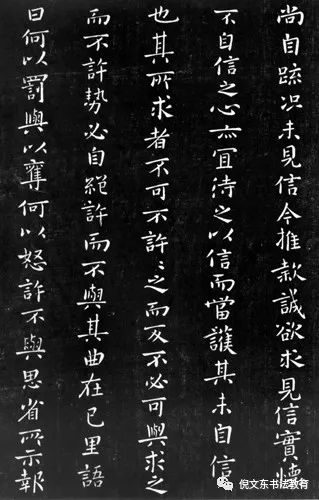 尚自疏况未見信今推款誠欲求見信實懐
不自信之心亦宜待之以信而當護其未自信
也其所求者不可不許許之而反不必可與求之
而不許勢必自絕許而不與其曲在己里語
曰何以罰與以奪何以怒許不與思省所示報
倪文东书法教育